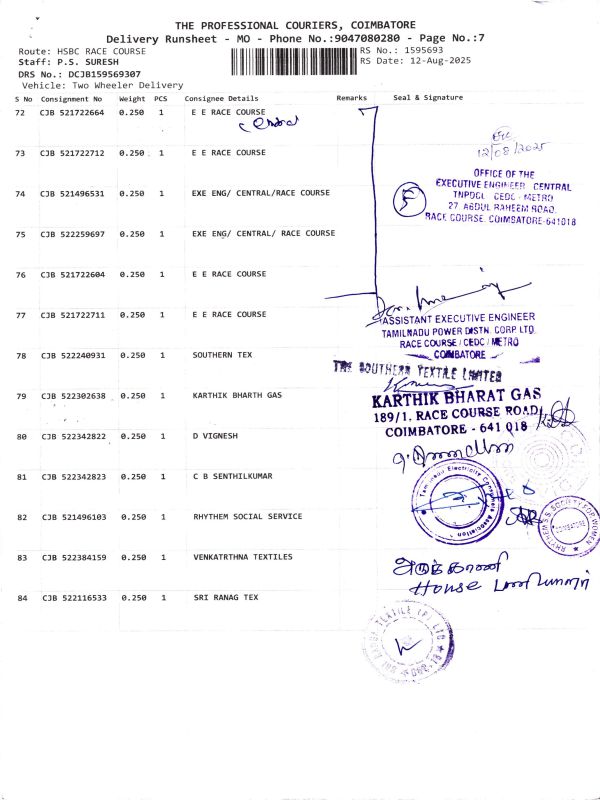 THE PROFESSIONAL COURIERS, COIMBATORE
Delivery Runsheet - MO - Phone No.:9047080280 - Page No.:7
Route: HSBC RACE COURSE
RS No.: 1595693
Staff: P.S. SURESH
RS Date: 12-Aug-2025
DRS No.: DCJB159569307
Vehicle: Two Wheeler Delivery
S No Consignment No Weight PCS Consignee Details Remarks Seal & Signature
72 CJB 521722664 0.250 1 E E RACE COURSE
Central
73 CJB 521722712 0.250 1 E E RACE COURSE
12/08/2025
74 CJB 521496531 0.250 1 EXE ENG/ CENTRAL/RACE COURSE
OFFICE OF THE
EXECUTIVE ENGINEER CENTRAL
TNPDCL CEDC - METRO
27, ABDUL RAHEEM ROAD,
RACE COURSE, COIMBATORE-641018
75 CJB 522259697 0.250 1 EXE ENG/ CENTRAL/ RACE COURSE
76 CJB 521722604 0.250 1 E E RACE COURSE
77 CJB 521722711 0.250 1 E E RACE COURSE
ASSISTANT EXECUTIVE ENGINEER
TAMILNADU POWER DISTN. CORP LTD
RACE COURSE / CEDC / METRO
COIMBATORE
78 CJB 522240931 0.250 1 SOUTHERN TEX
THE SOUTHERN TEXTILE LIMITED
79 CJB 522302638 0.250 1 KARTHIK BHARTH GAS
KARTHIK BHARAT GAS
189/1, RACE COURSE ROAD,
COIMBATORE - 641 018
80 CJB 522342822 0.250 1 D VIGNESH
81 CJB 522342823 0.250 1 C B SENTHILKUMAR
Tamilnadu Electricity Consumers Association
82 CJB 521496103 0.250 1 RHYTHEM SOCIAL SERVICE
RHYTHEM S.S. SOCIETY FOR WOMEN
COIMBATORE
83 CJB 522384159 0.250 1 VENKATRTHNA TEXTILES
House
84 CJB 522116533 0.250 1 SRI RANAG TEX